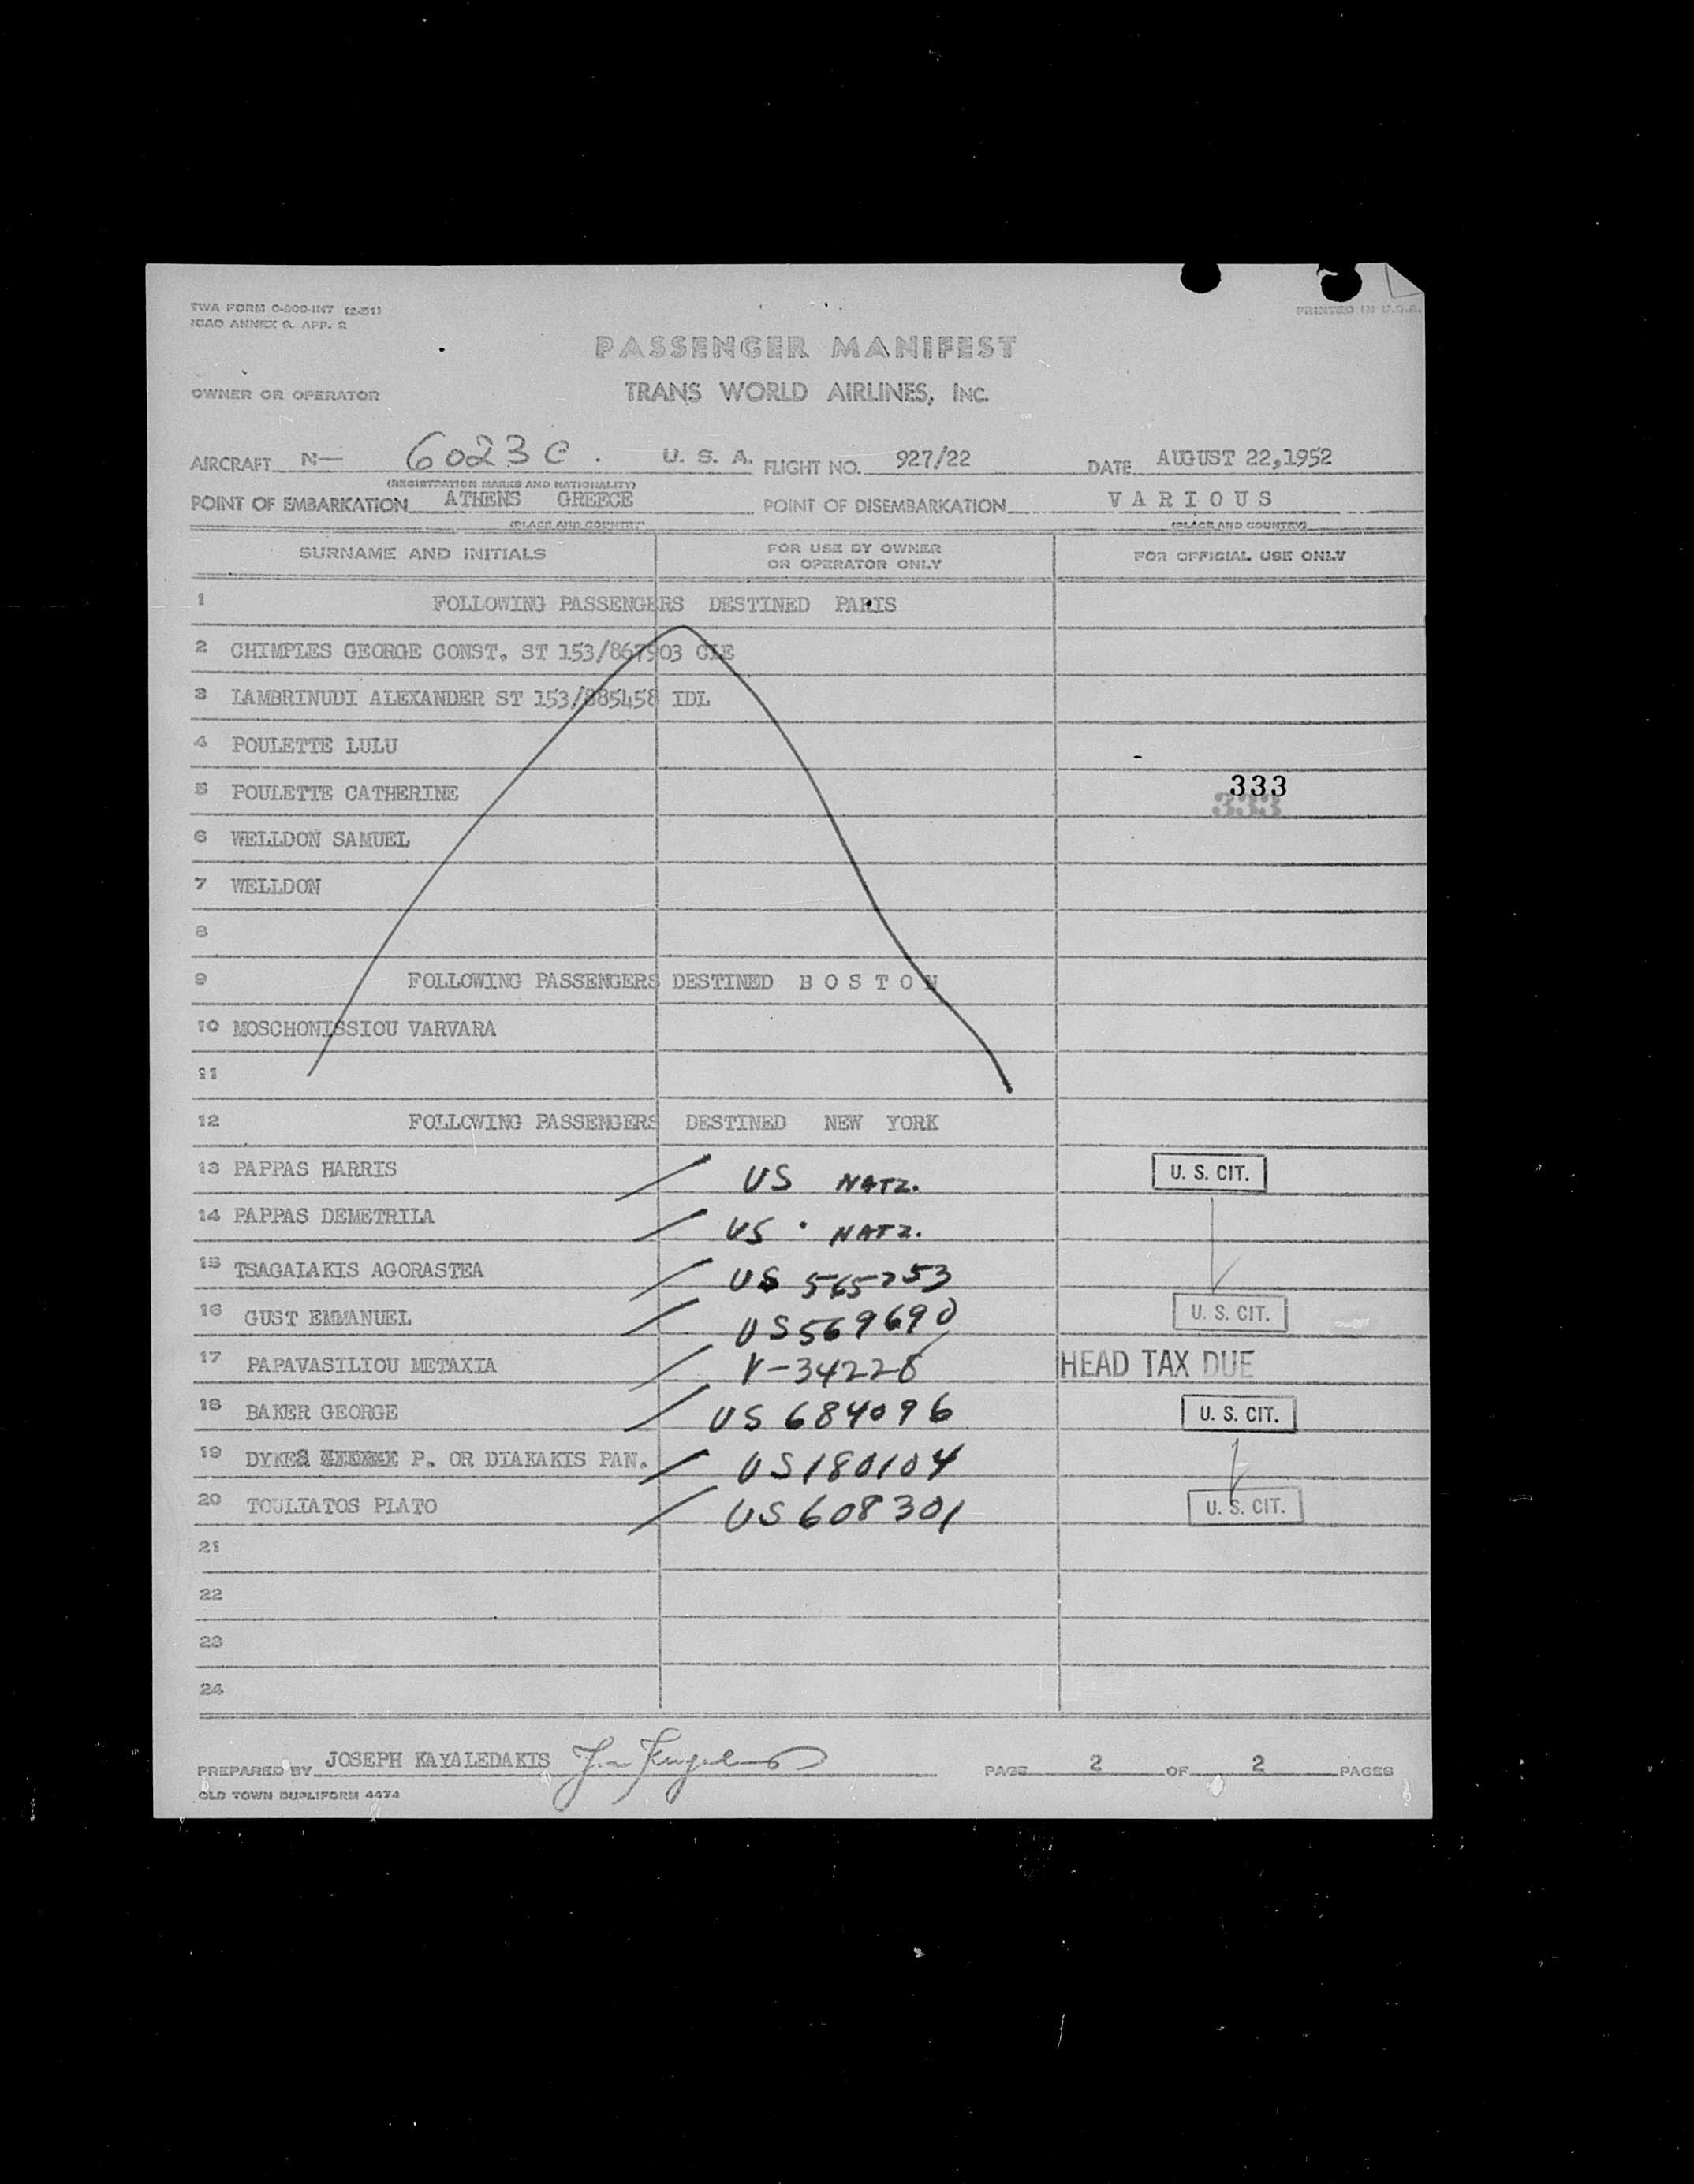 TWA FORM O-800-INT (2-51)
ICAO ANNEX 9, APP. 2
PRINTED IN U.S.A.
PASSENGER MANIFEST
OWNER OR OPERATOR TRANS WORLD AIRLINES, INC.
AIRCRAFT N— 6023C. U. S. A. FLIGHT NO. 927/22 DATE AUGUST 22,1952
(REGISTRATION MARKS AND NATIONALITY)
POINT OF EMBARKATION ATHENS GREECE POINT OF DISEMBARKATION VARIOUS
(PLACE AND COUNTRY) (PLACE AND COUNTRY)
SURNAME AND INITIALS FOR USE BY OWNER OR OPERATOR ONLY FOR OFFICIAL USE ONLY
1 FOLLOWING PASSENGERS DESTINED PARIS
2 CHIMPLES GEORGE CONST. ST 153/867903 CLE
3 LAMBRINUDI ALEXANDER ST 153/885458 IDL
4 POULETTE LULU
5 POULETTE CATHERINE 333
333
6 WELLDON SAMUEL
7 WELLDON
8
9 FOLLOWING PASSENGERS DESTINED B O S T O N
10 MOSCHONISSIOU VARVARA
11
12 FOLLOWING PASSENGERS DESTINED NEW YORK
13 PAPPAS HARRIS US NATZ. U. S. CIT.
14 PAPPAS DEMETRILA US NATZ.
15 TSAGALAKIS AGORASTEA US 565253
16 GUST EMMANUEL US569690 U. S. CIT.
17 PAPAVASILIOU METAXIA V-34228 HEAD TAX DUE
18 BAKER GEORGE US 684096 U. S. CIT.
19 DYKES P. OR DIAKAKIS PAN. US180104
20 TOULIATOS PLATO US608301 U. S. CIT.
21
22
23
24
PREPARED BY JOSEPH KAYALEDAKIS PAGE 2 OF 2 PAGES
OLD TOWN DUPLIFORM 4474